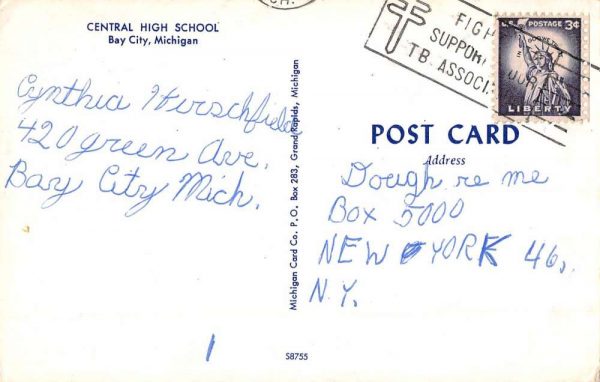 CENTRAL HIGH SCHOOL
Bay City, Michigan
Cynthia Hirschfield
420 green Ave.
Bay City Mich.
1
Michigan Card Co. P.O. Box 283, Grand Rapids, Michigan
S8755
CH.
FIGH
SUPPOR
TB ASSOCI
U.S. POSTAGE 3¢
IN GOD WE TRUST
LIBERTY
POST CARD
Address
Dough re me
Box 5000
NEW YORK 46,
N.Y.